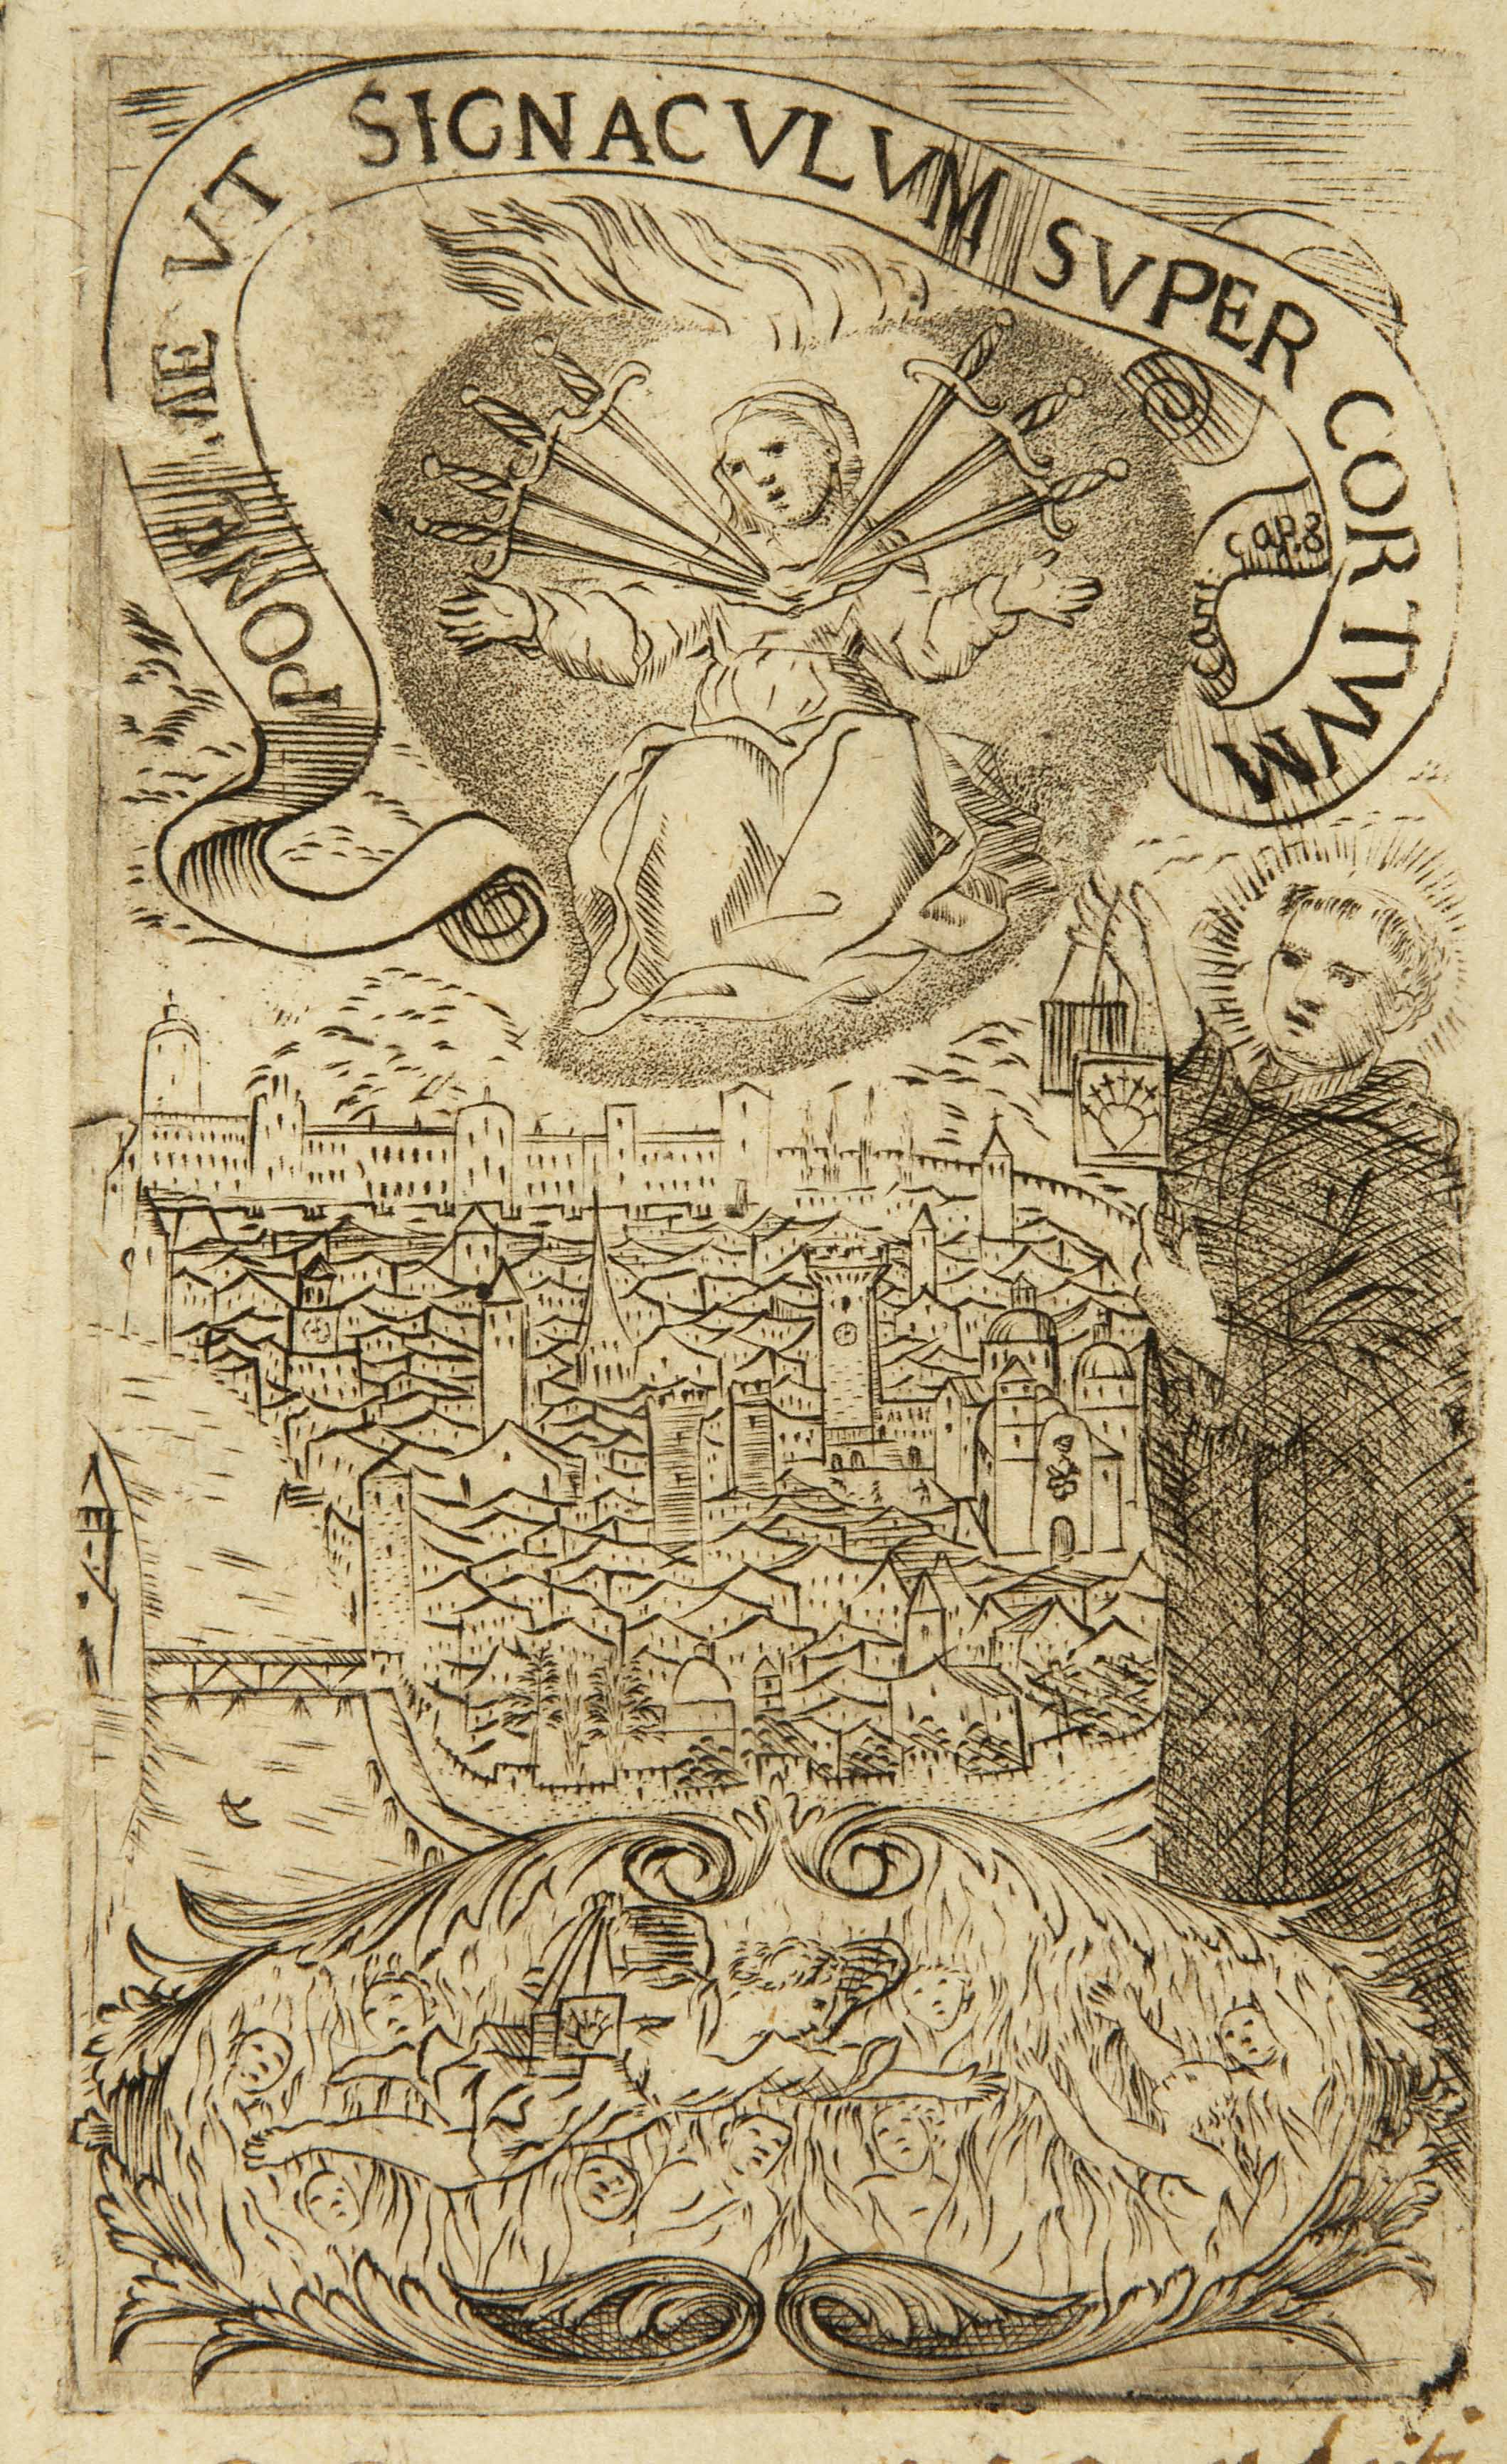 PONE ME VT SIGNACVLVM SVPER COR TVVM
cant. cap. 8